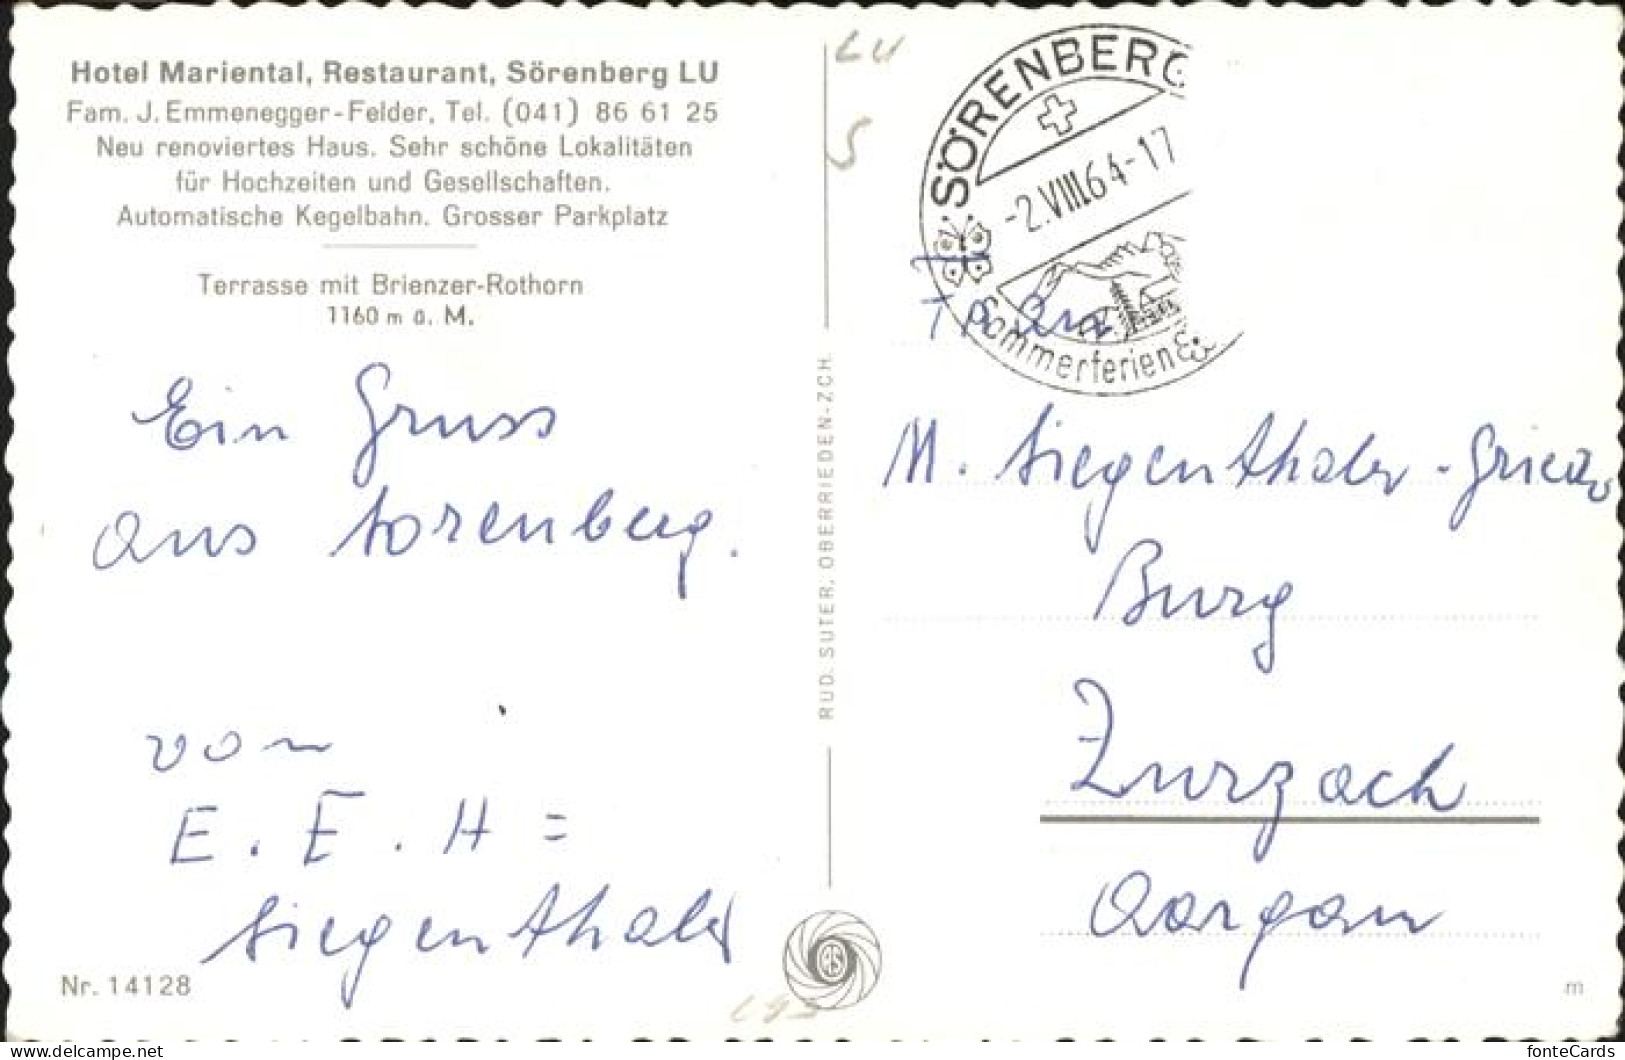 Hotel Mariental, Restaurant, Sörenberg LU
Fam. J. Emmenegger-Felder, Tel. (041) 86 61 25
Neu renoviertes Haus. Sehr schöne Lokalitäten
für Hochzeiten und Gesellschaften.
Automatische Kegelbahn. Grosser Parkplatz
Terrasse mit Brienzer-Rothorn
1160 m ü. M.
Ein Gruss
aus Sorenberg.
von
E. F. H =
Siegenthaler
Nr. 14128
RUD. SUTER, OBERRIEDEN-ZCH.
RS
LU
S
SÖRENBERG
-2.VIII.64-17
Sommerferien &
M. Siegenthaler-Grieder
Burg
Zurzach
Aargau
m
delcampe.net
fonteCards